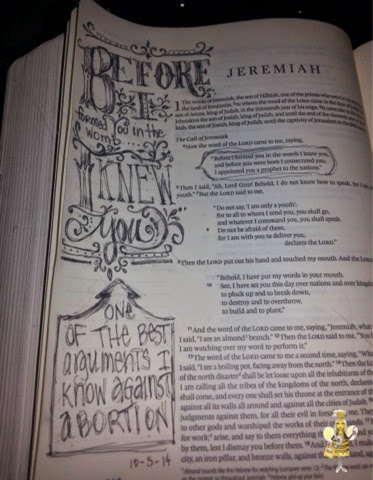 BEFORE
I
formed you in the
womb...
I
KNEW
you
ONE
OF THE BEST
arguments I
know against
ABORTION
10-5-14
JEREMIAH
1 The words of Jeremiah, the son of Hilkiah, one of the priests who were in
the land of Benjamin, to whom the word of the LORD came in the days of
son of Amon, king of Judah, in the thirteenth year of his reign.
Jehoiakim the son of Josiah, king of Judah, and until the end of the eleventh
kiah, the son of Josiah, king of Judah, until the captivity of Jerusalem in the
The Call of Jeremiah
Now the word of the LORD came to me, saying,
"Before I formed you in the womb I knew you,
and before you were born I consecrated you;
I appointed you a prophet to the nations."
Then I said, "Ah, Lord GOD! Behold, I do not know how to speak, for I
youth." But the LORD said to me,
"Do not say, 'I am only a youth';
for to all to whom I send you, you shall go,
and whatever I command you, you shall speak.
8 Do not be afraid of them,
for I am with you to deliver you,
declares the LORD."
Then the LORD put out his hand and touched my mouth. And the LORD
"Behold, I have put my words in your mouth.
10 See, I have set you this day over nations and over
to pluck up and to break down,
to destroy and to overthrow,
to build and to plant."
11 And the word of the LORD came to me, saying, "Jeremiah, what
I said, "I see an almond branch." 12 Then the LORD said to me, "You
I am watching over my word to perform it."
13 The word of the LORD came to me a second time, saying, "What
I said, "I see a boiling pot, facing away from the north." 14 Then the
of the north disaster shall be let loose upon all the inhabitants of the
I am calling all the tribes of the kingdoms of the north, declares
shall come, and every one shall set his throne at the entrance of
against all its walls all around and against all the cities of Judah. 16
judgments against them, for all their evil in
to other gods and worshiped the works of their
for work; arise, and say to them everything
by them, lest I dismay you before them.
city, an iron pillar, and bronze walls, against